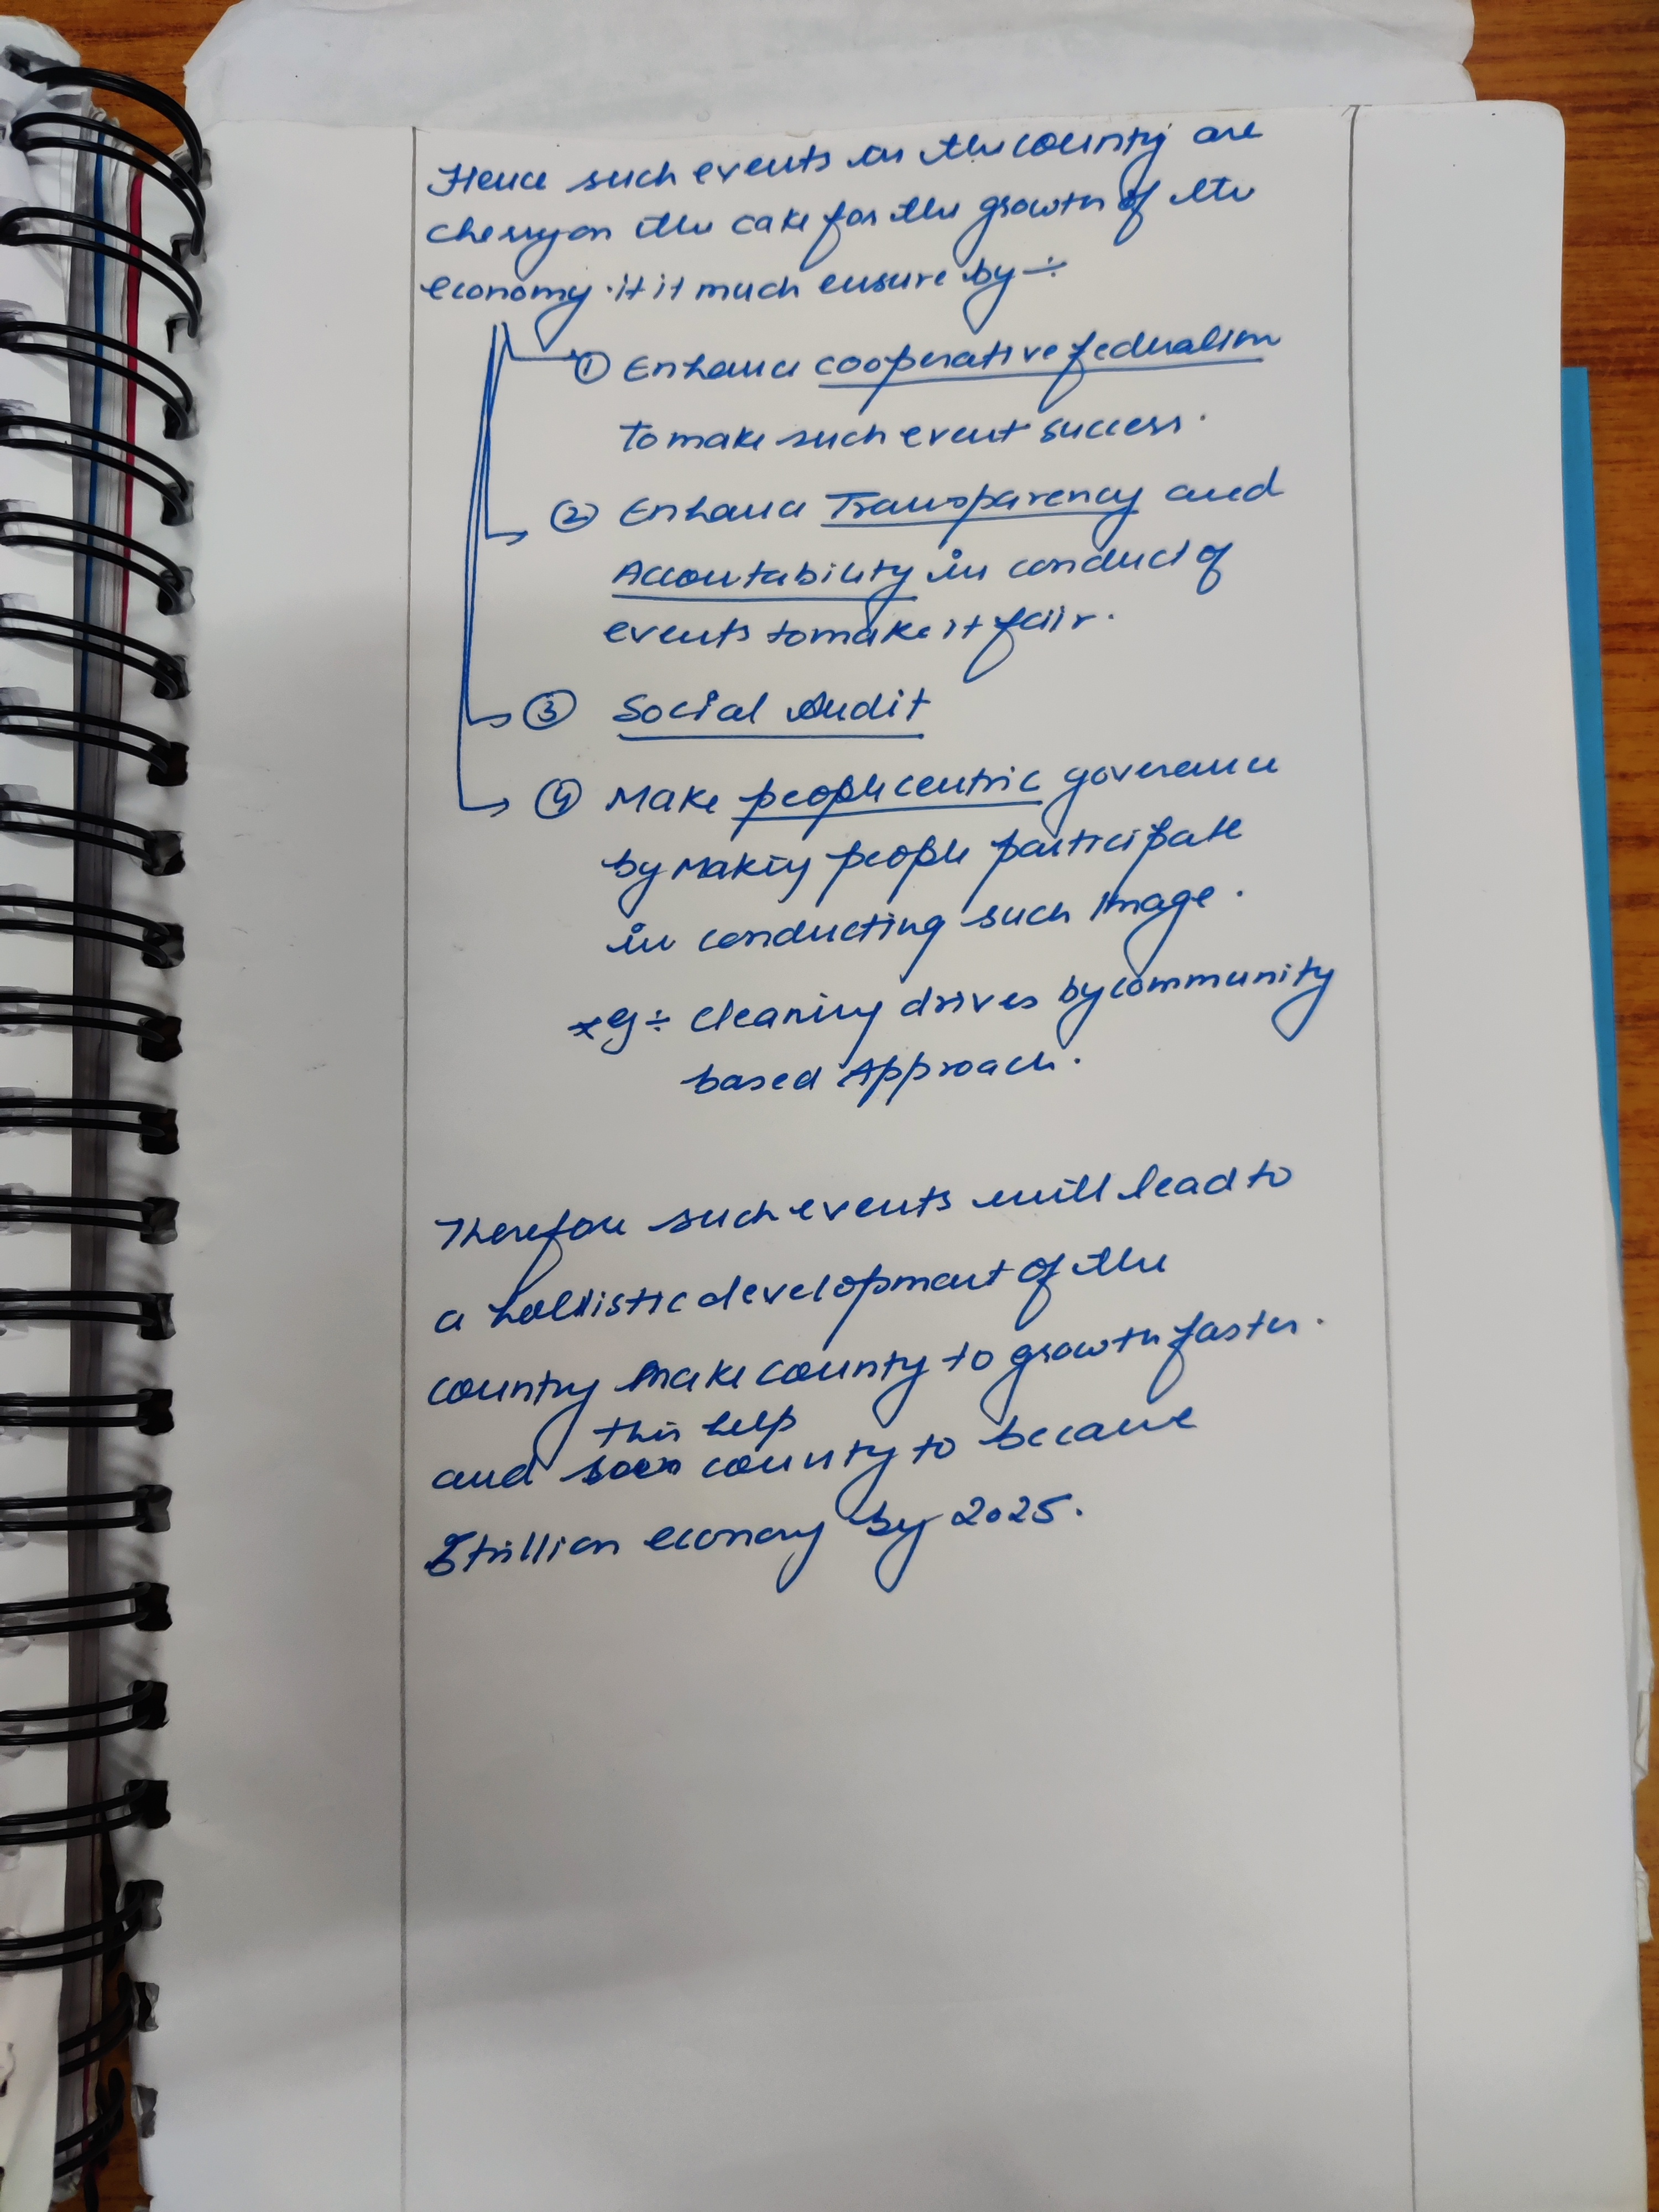 Hence such events in the country are
cherry on the cake for the growth of the
economy. it it much ensure by ÷
① Enhance cooperative federalism
to make such event success.
② Enhance Transparency and
Accountability in conduct of
events to make it fair.
③ Social Audit
④ Make people centric goverence
by making people participate
in conducting such image.
eg ÷ cleaning drives by community
based Approach.
Therefore such events will lead to
a hollistic development of the
country make country to growth faster.
this help
and country to became
5 trillion economy by 2025.